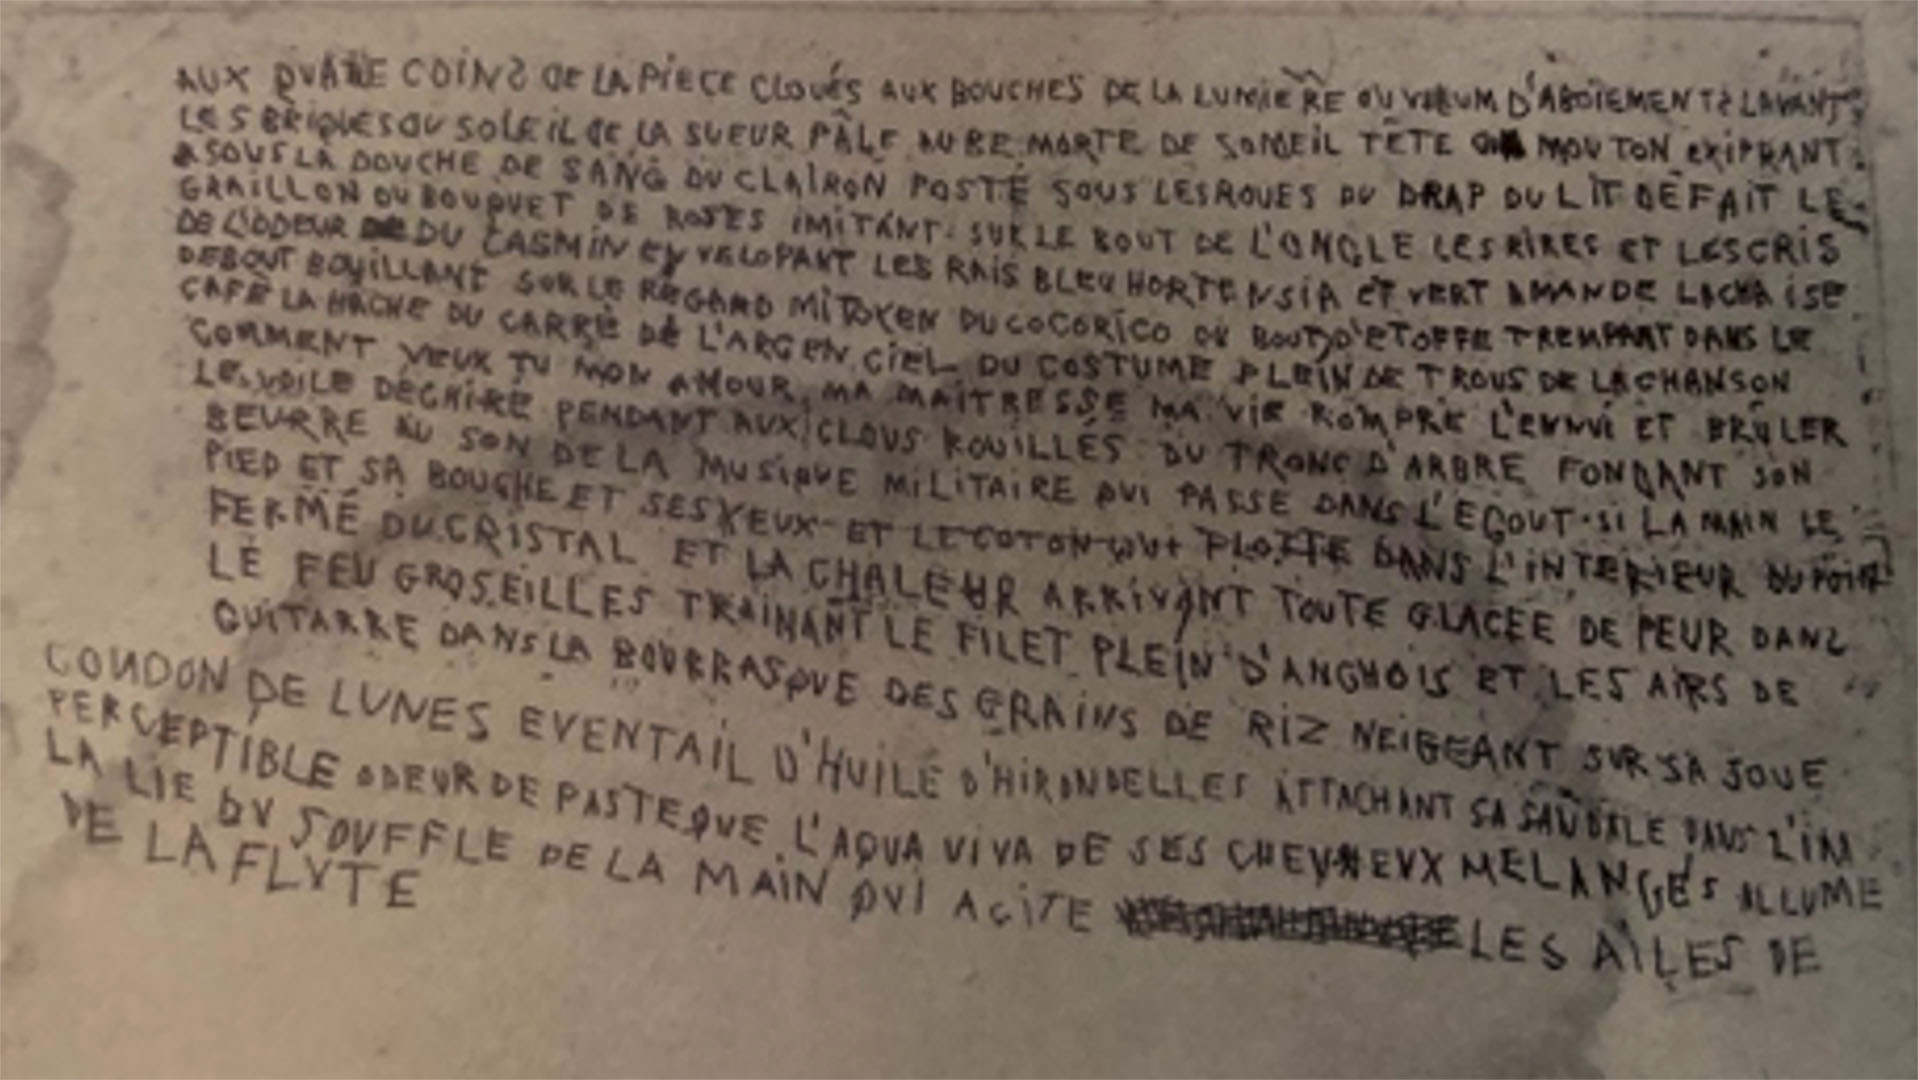 AUX QUATRE COINS DE LA PIECE CLOUÉS AUX BOUCHES DE LA LUMIERE DU D'ABOIEMENTS LAVANT
LES BRIQUES DU SOLEIL DE LA SUEUR PÂLE AUBE MORTE DE SOMEIL TÊTE MOUTON
SOUS LA DOUCHE DE SANG DU CLAIRON POSTÉ SOUS LES ROUES DU DRAP DU LIT DÉFAIT LE
GRAILLON DU BOUQUET DE ROSES IMITANT SUR LE BOUT DE L'ONGLE LES RIRES ET LES CRIS
DE L'ODEUR DU JASMIN ENVELOPANT LES RAIS BLEU HORTENSIA ET VERT AMANDE LA CHAISE
DEBOUT BOUILLANT SUR LE REGARD MITOYEN DU COCORICO DU BOUT D'ETOFFE TREMPANT DANS LE
CAFÉ LA HACHE DU CARRÉ DE L'ARGEN CIEL DU COSTUME PLEIN DE TROUS DE LA CHANSON
COMMENT VEUX TU MON AMOUR, MA MAITRESSE MA VIE ROMPRE L'ENNUI ET BRÛLER
LE VOILE DÉCHIRÉ PENDANT AUX CLOUS ROUILLÉS DU TRONC D'ARBRE FONDANT SON
BEURRE AU SON DE LA MUSIQUE MILITAIRE QUI PASSE DANS L'EGOUT SI LA MAIN LE
PIED ET SA BOUCHE ET SES YEUX ET LE COTON QUI FLOTTE DANS L'INTERIEUR DU
FERMÉ DU CRISTAL ET LA CHALEUR ARRIVANT TOUTE GLACÉE DE PEUR DANS
LE FEU GROSEILLES TRAINANT LE FILET PLEIN D'ANCHOIS ET LES AIRS DE
GUITARRE DANS LA BOURRASQUE DES GRAINS DE RIZ NEIGEANT SUR SA JOUE
COUDON DE LUNES EVENTAIL D'HUILE D'HIRONDELLES ATTACHANT SA SANDALE DANS L'IM
PERCEPTIBLE ODEUR DE PASTEQUE L'AQUA VIVA DE SES CHEVEUX MELANGÉS ALLUME
LA LIE DU SOUFFLE DE LA MAIN QUI AGITE LES AILES DE
DE LA FLUTE